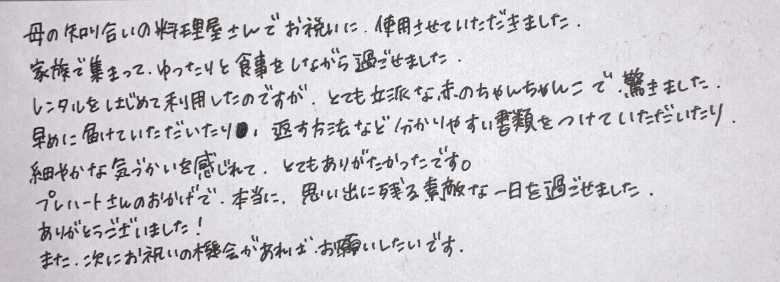 母の知り合いの料理屋さんでお祝いに、使用させていただきました.
家族で集まって、ゆったりと食事をしながら過ごせました.
レンタルをはじめて利用したのですが、とても立派な赤のちゃんちゃんこで、驚きました.
早めに届けていただいたり、返す方法など分かりやすい書類をつけていただいたり、
細やかな気づかいを感じれて、とてもありがたかったです。
プレハートさんのおかげで、本当に、思い出に残る素敵な一日を過ごせました.
ありがとうございました!
また、次にお祝いの機会があれば、お願いしたいです.